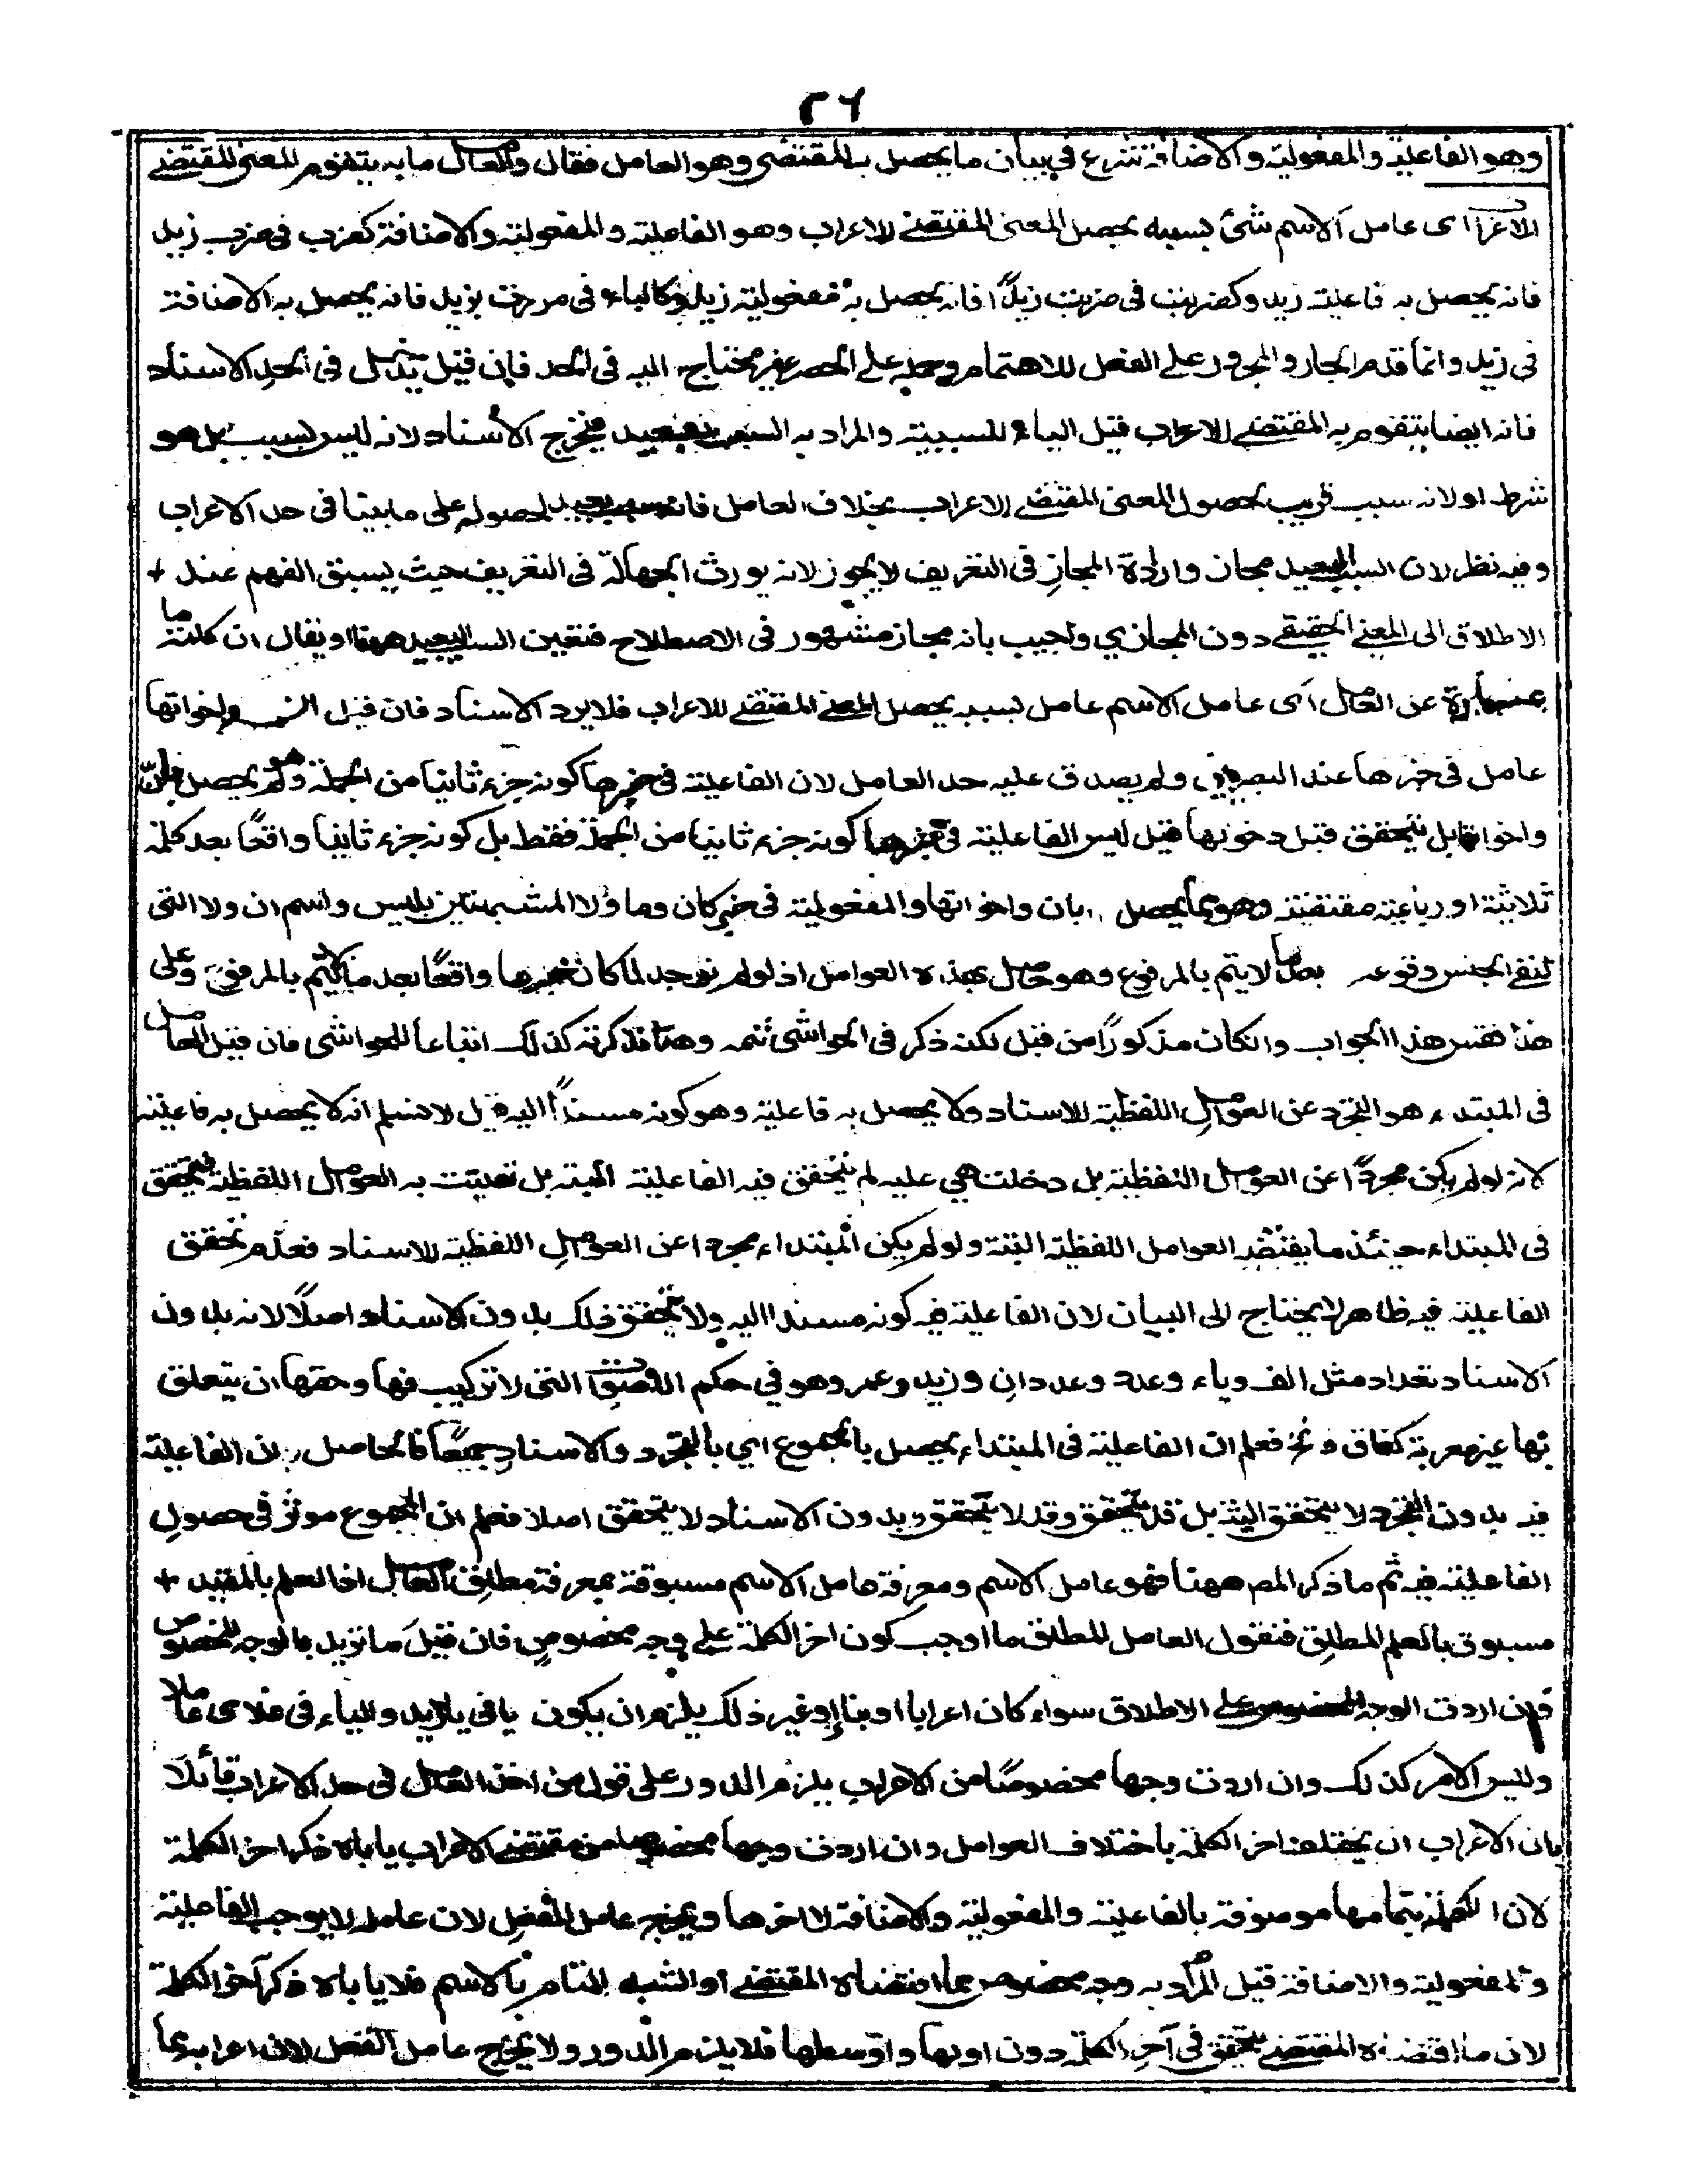 ٢٦
وهو الفاعلية والمفعولية والاضافة شرع في بيان ما يحصل به المقتضى وهو العامل فقال والعامل ما به يتقوم المعنى المقتضي
للاعراب اى عامل الاسم شئ بسببه يحصل المعنى المقتضي للاعراب وهو الفاعلية والمفعولية والاضافة كضرب في ضرب زيد
فانه يحصل به فاعلية زيد وكضربت في ضربت زيدًا فانه يحصل به مفعولية زيد وكالباء في مررت بزيد فانه يحصل به الاضافة
في زيد وانما قدم الجار والمجرور على الفعل للاهتمام وحمله على الحصر غير محتاج اليه في الحد فان قيل يدخل في الحد الاسناد
فانه ايضا يتقوم به المقتضي للاعراب قيل الباء للسببية والمراد به السبب البعيد فيخرج الاسناد لانه ليس بسبب بل هو
شرط او لانه سبب قريب لحصول المعنى المقتضي للاعراب بخلاف العامل فانه سبب بعيد لحصوله على ما بينا في حد الاعراب
وفيه نظر لان السبب البعيد مجاز وارادة المجاز في التعريف لا يجوز لانه يورث الجهالة في التعريف حيث يسبق الفهم عند +
الاطلاق الى المعنى الحقيقي دون المجازي واجيب بانه مجاز مشهور في الاصطلاح فتعين السبب البعيد ههنا او يقال ان كلمة ما
عبارة عن العامل اى عامل الاسم عامل بسببه يحصل المعنى المقتضي للاعراب فلا يرد الاسناد فان قيل ان واخواتها
عامل في خبرها عند البصريين ولم يصدق عليه حد العامل لان الفاعلية في خبرها كونه جزء ثانيا من الجملة وهو لم يحصل بان
واخواتها بل يتحقق قبل دخولها قيل ليس الفاعلية في خبرها كونه جزء ثانيا من الجملة فقط بل كونه جزء ثانيا واقعًا بعد كلمة
ثلاثية او رباعية مقتضية وهو مما يحصل بان واخواتها والمفعولية في خبر كان وما ولا المشبهتين بليس واسم ان ولا التي
لنفي الجنس وقوعه بعد ما لا يتم بالمرفوع وهو حاصل بهذه العوامل اذ لو لم توجد لما كان خبرها واقعًا بعد ما لا يتم بالمرفوع وعلى
هذا فقس هذا الجواب وان كان مذكورًا من قبل لكنه ذكر في الحواشي ثمه وههنا فذكرته كذلك اتباعا للحواشي فان قيل العامل
في المبتداء هو التجرد عن العوامل اللفظية للاسناد ولا يحصل به فاعلية وهو كونه مسنداً اليه قيل لا نسلم انه لا يحصل به فاعليته
لانه لو لم يكن مجردًا عن العوامل اللفظية بل دخلت هي عليه لم يتحقق فيه الفاعلية البتة بل تعلقت به العوامل اللفظية فيتحقق
في المبتداء حينئذ ما يقتضيه العوامل اللفظية البتة ولو لم يكن المبتداء مجردا عن العوامل اللفظية للاسناد فعدم تحقق
الفاعلية فيه ظاهر لا يحتاج الى البيان لان الفاعلية فيه كونه مسندا اليه ولا يتحقق ذلك بدون الاسناد اصلًا لانه بدون
الاسناد تعداد مثل الف وباء وعدد وعددان وزيد وعمر وهو في حكم الاصوات التي لا تركيب فيها وحقها ان يتعلق
بها غير معربة كغاق ونخ فعلم ان الفاعلية في المبتداء يحصل بالمجموع اي بالتجرد والاسناد جميعًا فالحاصل ان الفاعلية
فيه بدون التجرد لا يتحقق البتة بل قد يتحقق وقد لا يتحقق وبدون الاسناد لا يتحقق اصلا فعلم ان المجموع موثر في حصول
الفاعلية فيه ثم ما ذكر المص ههنا فهو عامل الاسم ومعرفة عامل الاسم مسبوقة بمعرفة مطلق العامل اذ العلم بالمقيد +
مسبوق بالعلم المطلق فنقول العامل المطلق ما اوجب كون اخر الكلمة على وجه مخصوص فان قيل ما تريد بالوجه المخصوص
فان اردت الوجه المخصوص على الاطلاق سواء كان اعرابا او بناء او غير ذلك يلزم ان يكون يا في يا زيد والياء في غلامى عاملا
وليس الامر كذلك وان اردت وجها مخصوصًا من الاعراب يلزم الدور على قول من اخذ العامل في حد الاعراب قائلًا
بان الاعراب ان يختلف اخر الكلمة باختلاف العوامل وان اردت وجها مخصوصا من مقتضى الاعراب ياباه ذكر اخر الكلمة
لان الكلمة بتمامها موصوفة بالفاعلية والمفعولية والاضافة لا اخرها ويخرج عامل الفعل لان عامله لا يوجب الفاعلية
والمفعولية والاضافة قيل المراد به وجه مخصوص مما اقتضاه المقتضي او الشبه التام بالاسم فلا ياباه ذكر آخر الكلمة
لان ما اقتضاه المقتضي يتحقق في آخر الكلمة دون اولها واوسطها فلا يلزم الدور ولا يخرج عامل الفعل لان اعرابه مما